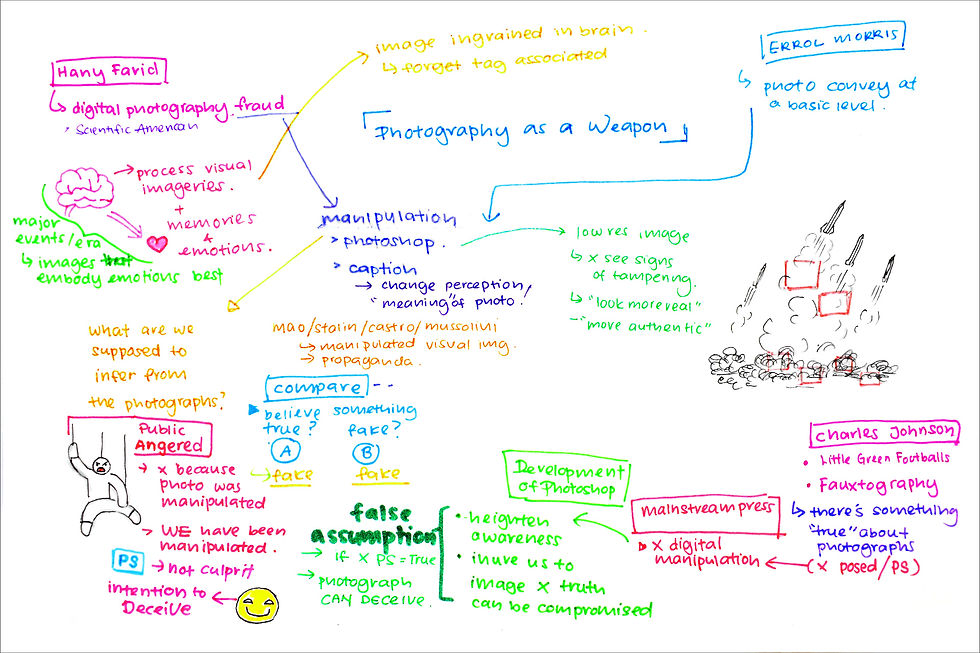 Hany Farid
↳ digital photography fraud
> Scientific American
→ process visual
imageries.
+
memories
&
emotions.
major
events/era
↳ images
embody emotions best
→ image ingrained in brain.
↳ forget tag associated
「Photography as a Weapon」
ERROL MORRIS
↳ photo convey at
a basic level.
manipulation
> photoshop.
> caption
→ change perception/
"meaning" of photo!
→ low res image
↳ x see signs
of tampering.
↳ "look more real"
- "more authentic"
what are we
supposed to
infer from
the photographs?
mao/stalin/castro/mussolini
↳ manipulated visual img.
→ propaganda.
compare --
believe something
true? fake?
A B
→ fake fake
Public
Angered
→ x because
photo was
manipulated
→ WE have been
manipulated.
PS → not culprit
intention to
Deceive
false
assumption
→ If x PS = True
→ photograph
CAN DECEIVE.
Development
of Photoshop
• heighten
awareness
• inure us to
image x truth
can be compromised
mainstream press
x digital
manipulation
Charles Johnson
• Little Green Footballs
• Fauxtography
↳ there's something
"true" about
photographs
(x posed/PS)